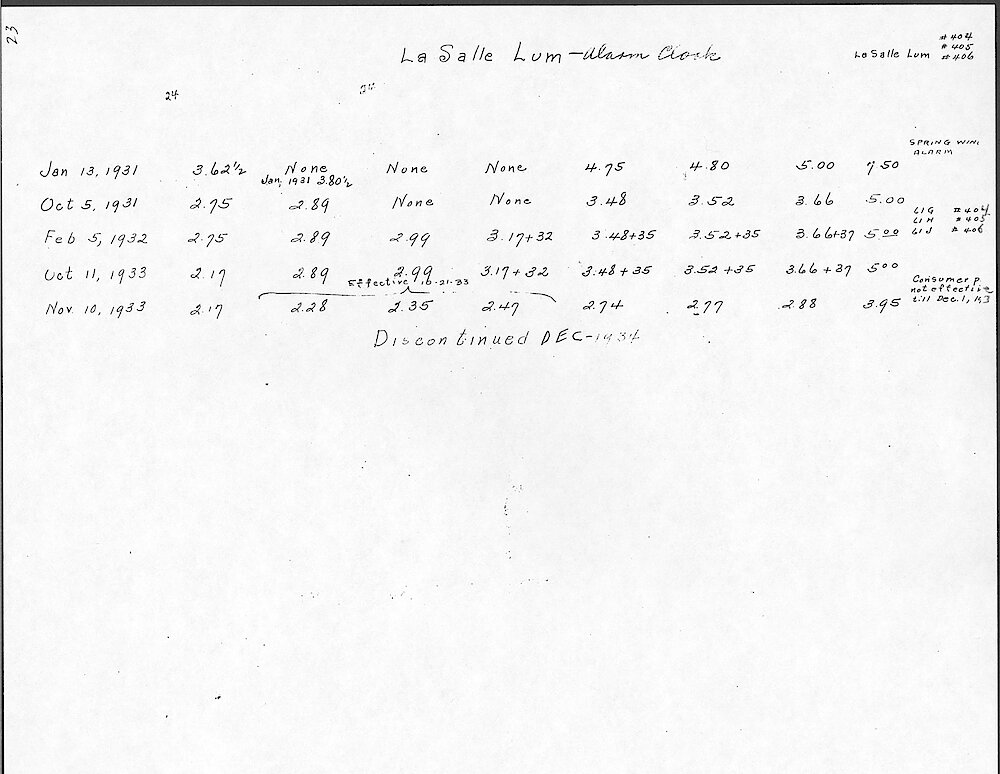 23
La Salle Lum - Alarm Clock
#404
#405
La Salle Lum #406
24
SPRING WIND
ALARM
Jan 13, 1931 3.62 1/2 None None None 4.75 4.80 5.00 7.50
Jan, 1931 3.80 1/2
Oct 5, 1931 2.75 2.89 None None 3.48 3.52 3.66 5.00
61G #404
61H #405
Feb 5, 1932 2.75 2.89 2.99 3.17+32 3.48+35 3.52+35 3.66+37 5.00 61J #406
Oct 11, 1933 2.17 2.89 2.99 3.17+32 3.48+35 3.52+35 3.66+37 5.00
Effective 10-21-33
Consumer p
not effective
till Dec. 1,
Nov. 10, 1933 2.17 2.28 2.35 2.47 2.74 2.77 2.88 3.95
Discontinued DEC-1934